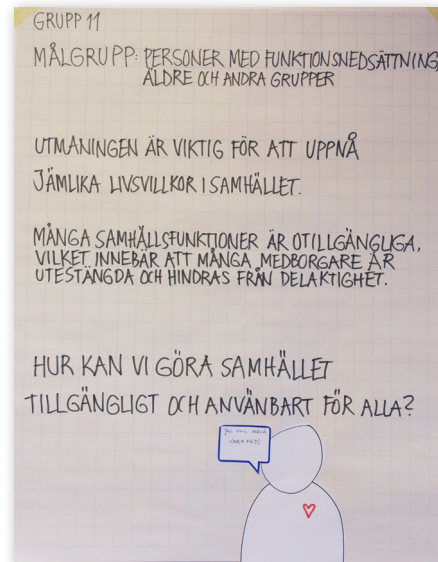 GRUPP 11
MÅLGRUPP: PERSONER MED FUNKTIONSNEDSÄTTNING
ÄLDRE OCH ANDRA GRUPPER
UTMANINGEN ÄR VIKTIG FÖR ATT UPPNÅ
JÄMLIKA LIVSVILLKOR I SAMHÄLLET.
MÅNGA SAMHÄLLSFUNKTIONER ÄR OTILLGÄNGLIGA,
VILKET INNEBÄR ATT MÅNGA MEDBORGARE ÄR
UTESTÄNGDA OCH HINDRAS FRÅN DELAKTIGHET.
HUR KAN VI GÖRA SAMHÄLLET
TILLGÄNGLIGT OCH ANVÄNBART FÖR ALLA?
JAG VILL OCKSÅ
VARA MED!